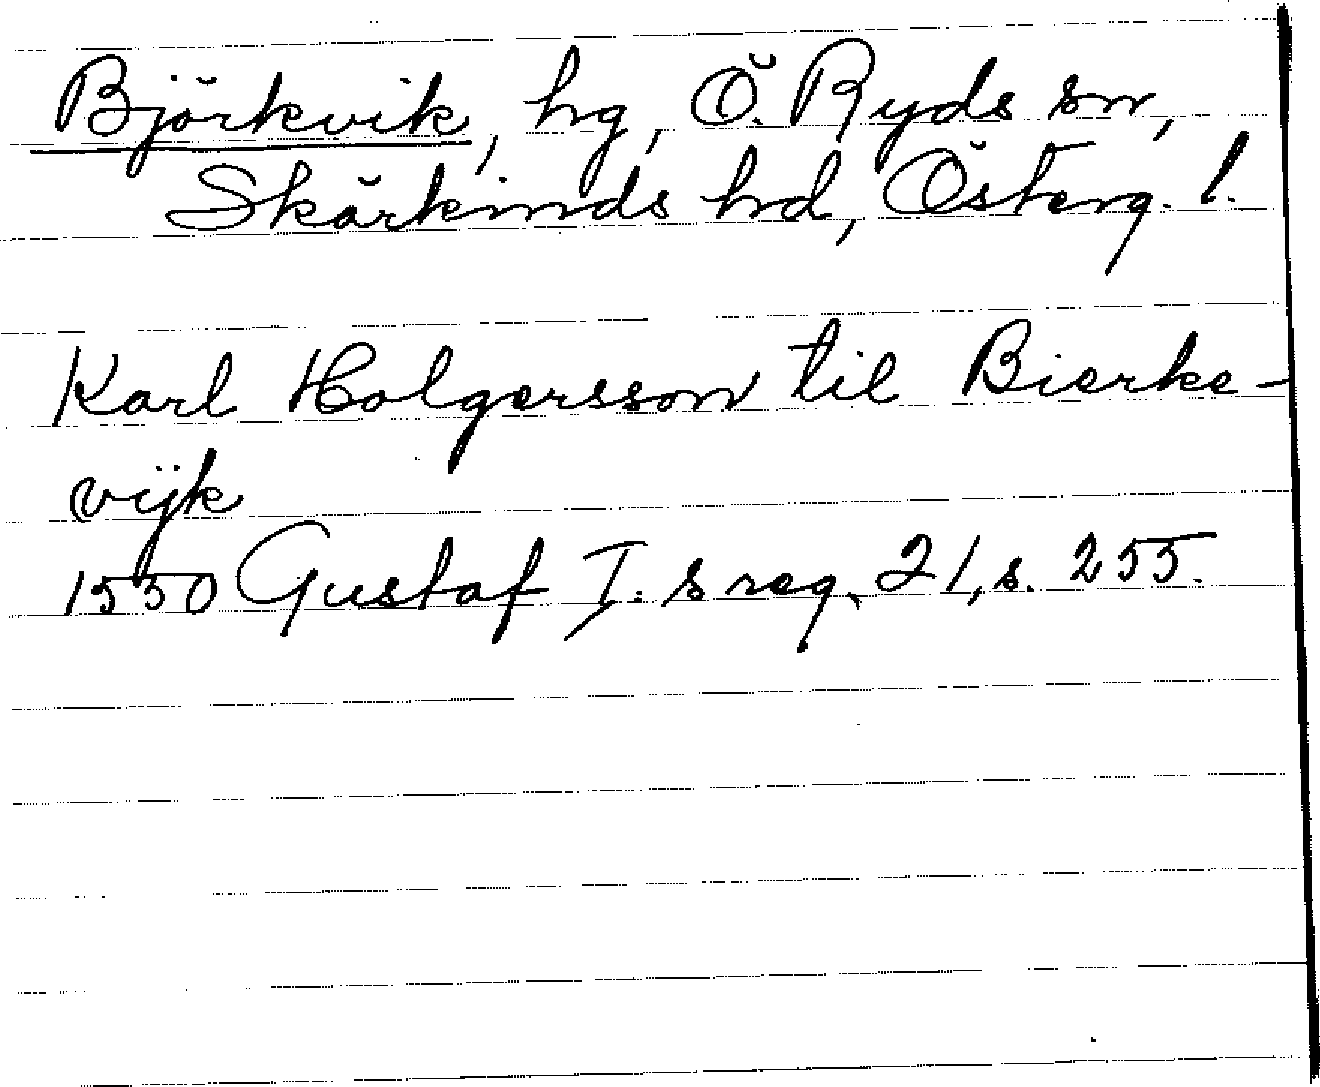 Björkvik, hg, Ö. Ryds sn,
Skärkinds hd, Österg. l.
Karl Holgersson til Bierke-
vijk
1550 Gustaf I:s reg. 21, s. 255.